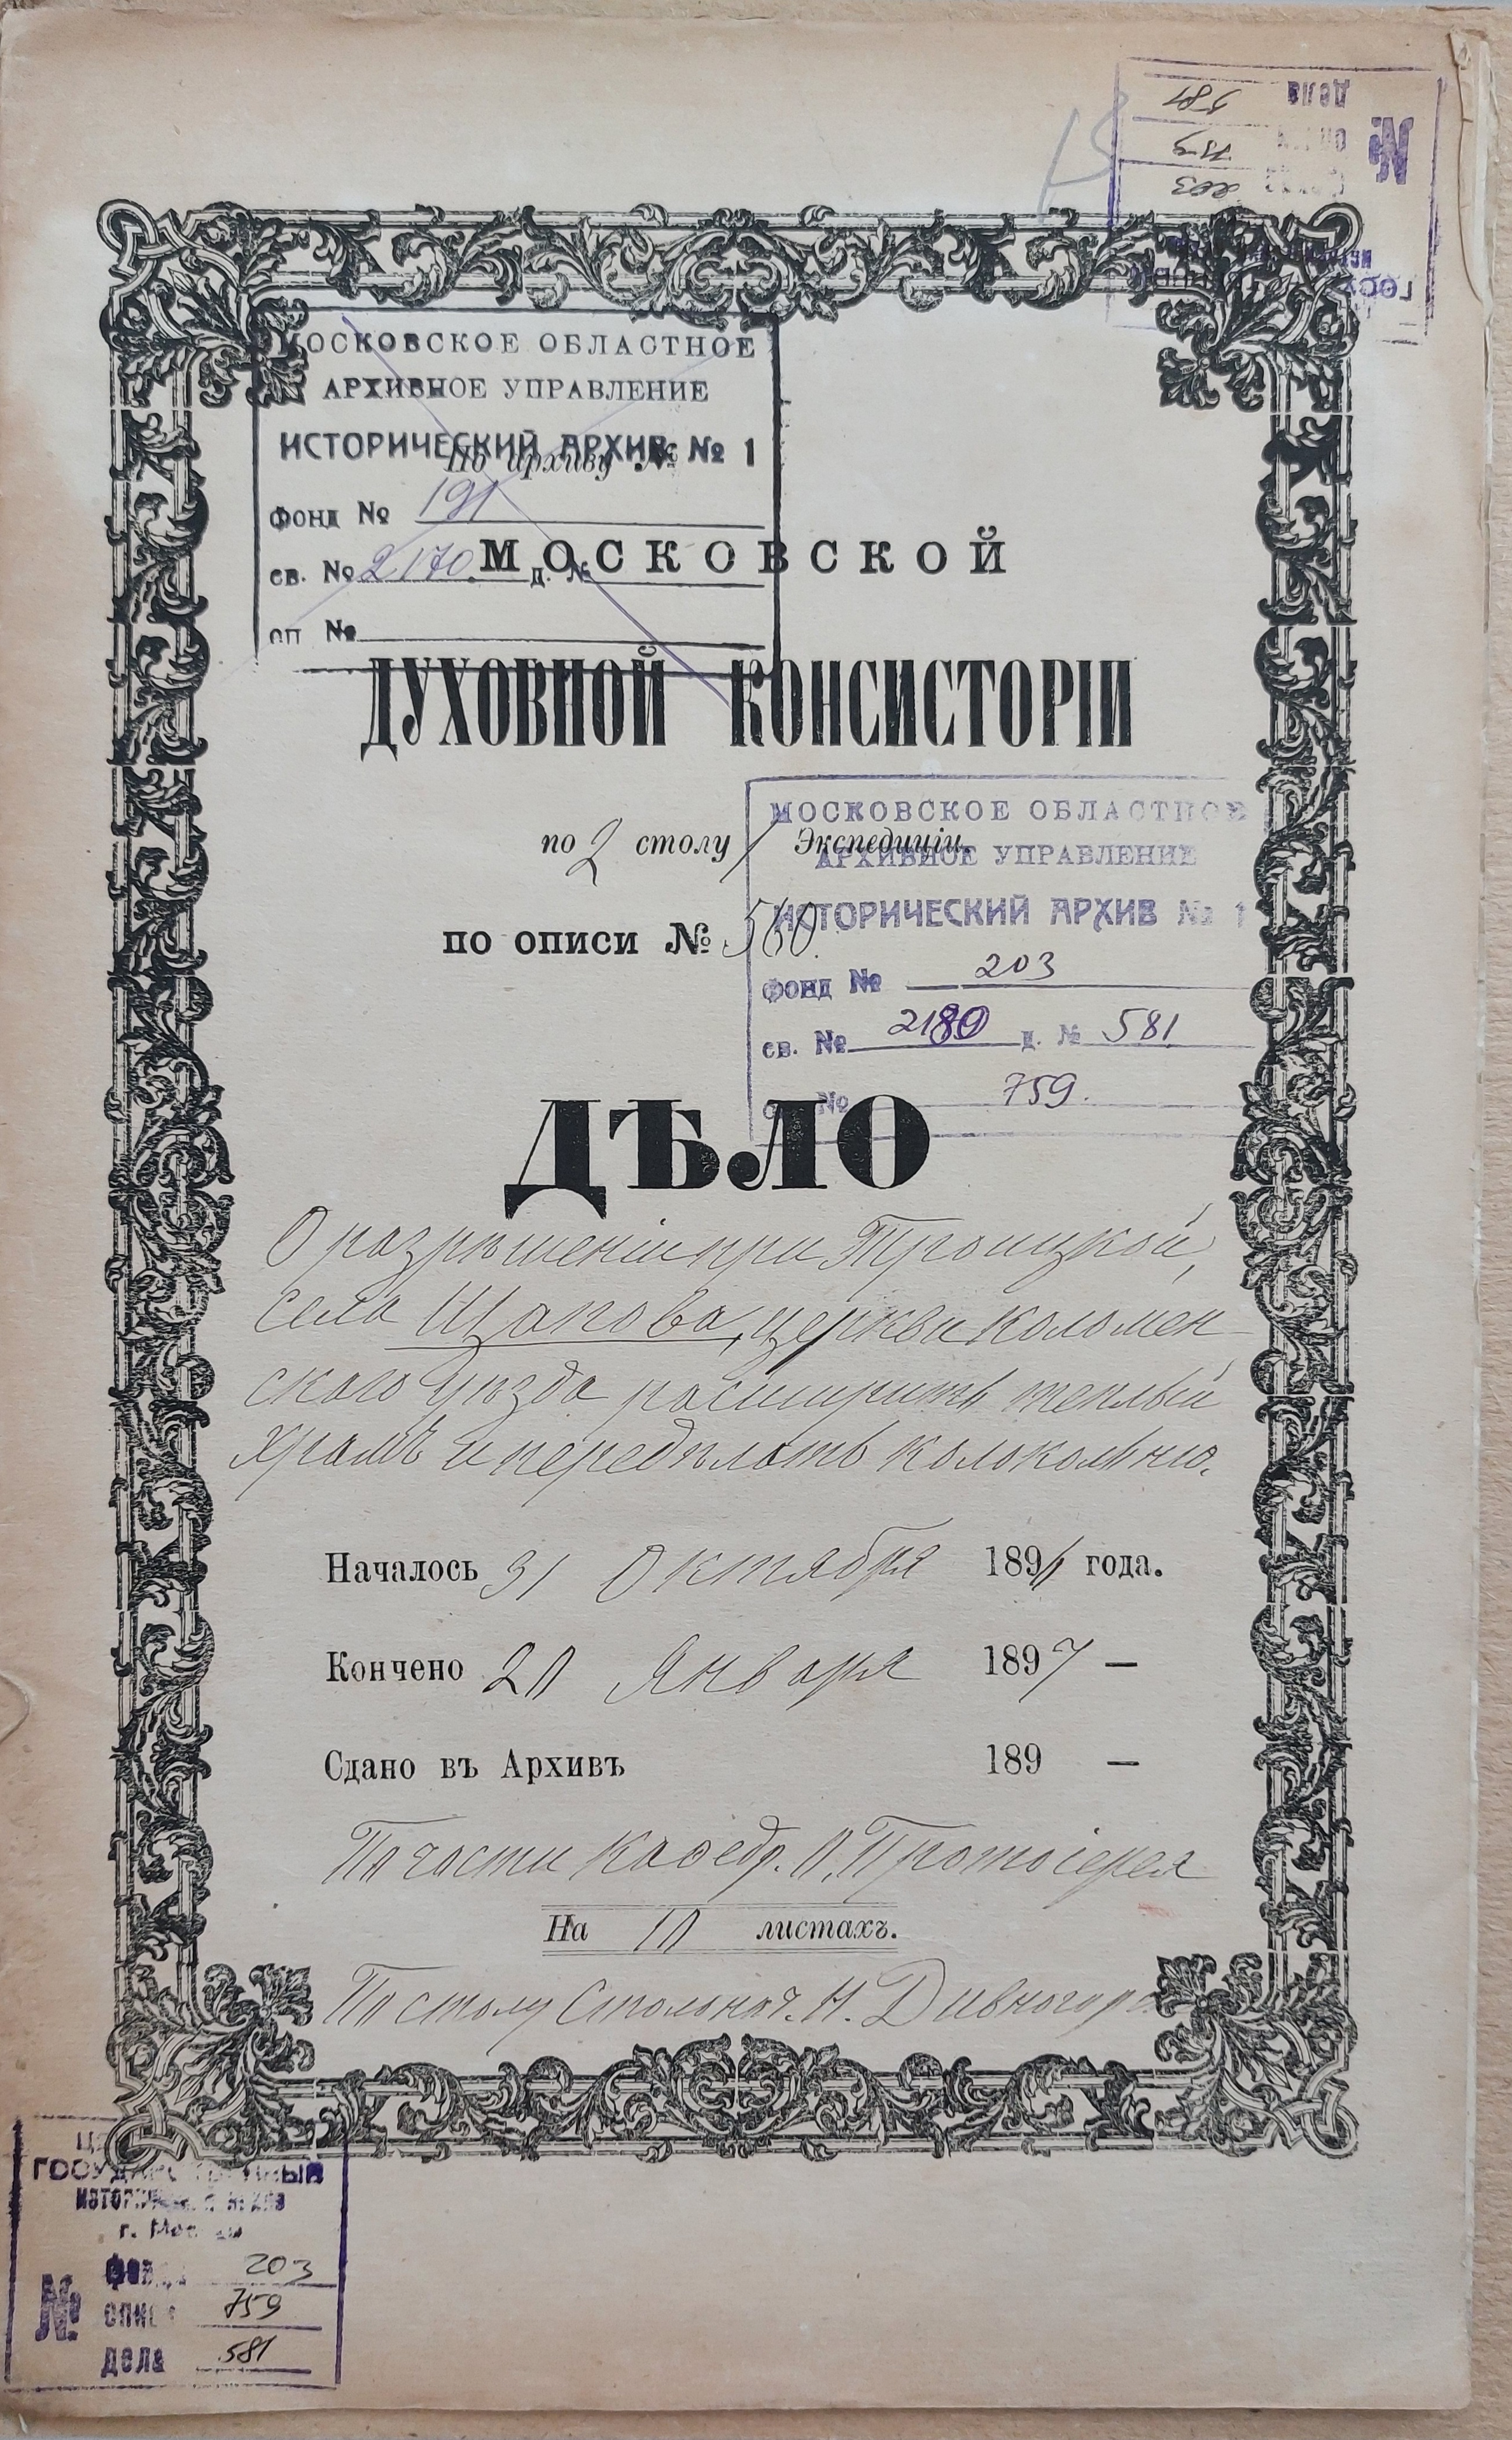 №
дела 581
опись 759
203
МОСКОВСКОЕ ОБЛАСТНОЕ
АРХИВНОЕ УПРАВЛЕНИЕ
ИСТОРИЧЕСКИЙ АРХИВ № 1
По архиву №
фонд № 191
св. № 2170 д. №
оп №
МОСКОВСКОЙ
ДУХОВНОЙ КОНСИСТОРІИ
МОСКОВСКОЕ ОБЛАСТНОЕ
по 2 столу 1 Экспедиціи.
АРХИВНОЕ УПРАВЛЕНИЕ
ИСТОРИЧЕСКИЙ АРХИВ № 1
по описи № 560.
фонд № 203
св. № 2180 д. № 581
№ 759.
ДѢЛО
О разрѣшеніи при Троицкой,
села Щапова, церкви Коломен-
скаго уѣзда расширить теплый
храмъ и передѣлать колокольню.
Началось 31 Октября 1896 года.
Кончено 20 Января 1897 —
Сдано въ Архивъ 189 —
По части Каѳедр. О. Протоіерея
На 10 листахъ.
По столу Столонач. Н. Дивногор
ГОСУДАРСТВЕННЫЙ
исторический архив
г. Москвы
№
фонд 203
опись 759
дела 581